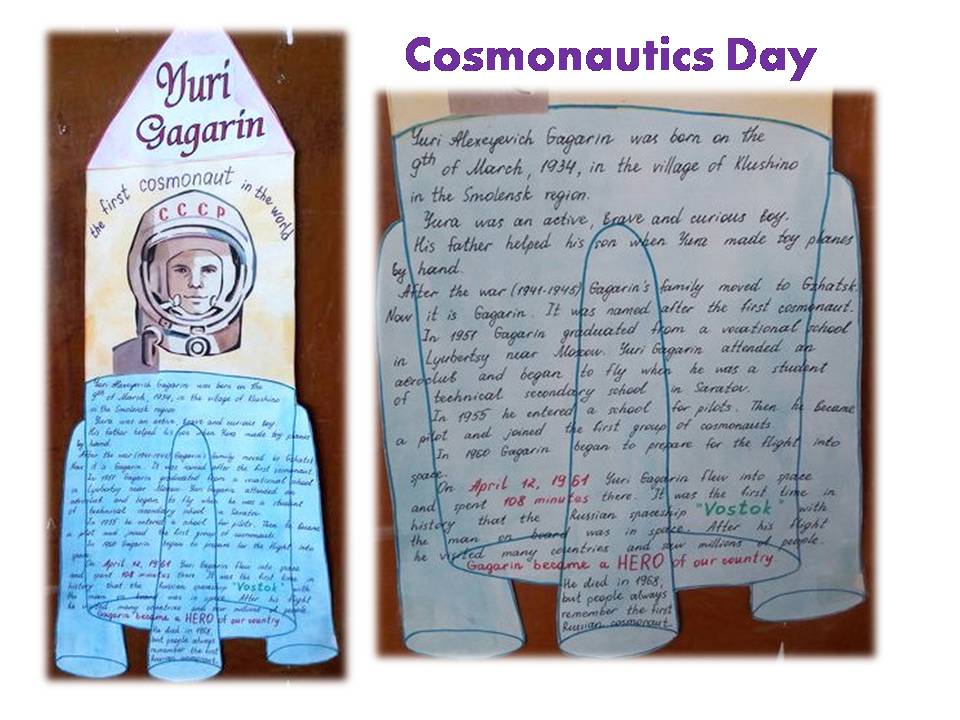 Cosmonautics Day
Yuri
Gagarin
the first cosmonaut in the world
СССР
Yuri Alexeyevich Gagarin was born on the
9th of March, 1934, in the village of Klushino
in the Smolensk region.
Yura was an active, brave and curious boy.
His father helped his son when Yura made toy planes
by hand.
After the war (1941-1945) Gagarin's family moved to Gzhatsk.
Now it is Gagarin. It was named after the first cosmonaut.
In 1951 Gagarin graduated from a vocational school
in Lyubertsy near Moscow. Yuri Gagarin attended an
aeroclub and began to fly when he was a student
of technical secondary school in Saratov.
In 1955 he entered a school for pilots. Then he became
a pilot and joined the first group of cosmonauts.
In 1960 Gagarin began to prepare for the flight into
space.
On April 12, 1961 Yuri Gagarin flew into space
and spent 108 minutes there. It was the first time in
history that the Russian spaceship "Vostok" with
the man on board was in space. After his flight
he visited many countries and saw millions of people.
Gagarin became a HERO of our country
He died in 1968,
but people always
remember the first
Russian cosmonaut.
Yuri Alexeyevich Gagarin was born on the
9th of March, 1934, in the village of Klushino
in the Smolensk region.
Yura was an active, brave and curious boy.
His father helped his son when Yura made toy planes
by hand.
After the war (1941-1945) Gagarin's family moved to Gzhatsk.
Now it is Gagarin. It was named after the first cosmonaut.
In 1951 Gagarin graduated from a vocational school
in Lyubertsy near Moscow. Yuri Gagarin attended an
aeroclub and began to fly when he was a student
of technical secondary school in Saratov.
In 1955 he entered a school for pilots. Then he became
a pilot and joined the first group of cosmonauts.
In 1960 Gagarin began to prepare for the flight into
space.
On April 12, 1961 Yuri Gagarin flew into space
and spent 108 minutes there. It was the first time in
history that the Russian spaceship "Vostok" with
the man on board was in space. After his flight
he visited many countries and saw millions of people.
Gagarin became a HERO of our country
He died in 1968,
but people always
remember the first
Russian cosmonaut.